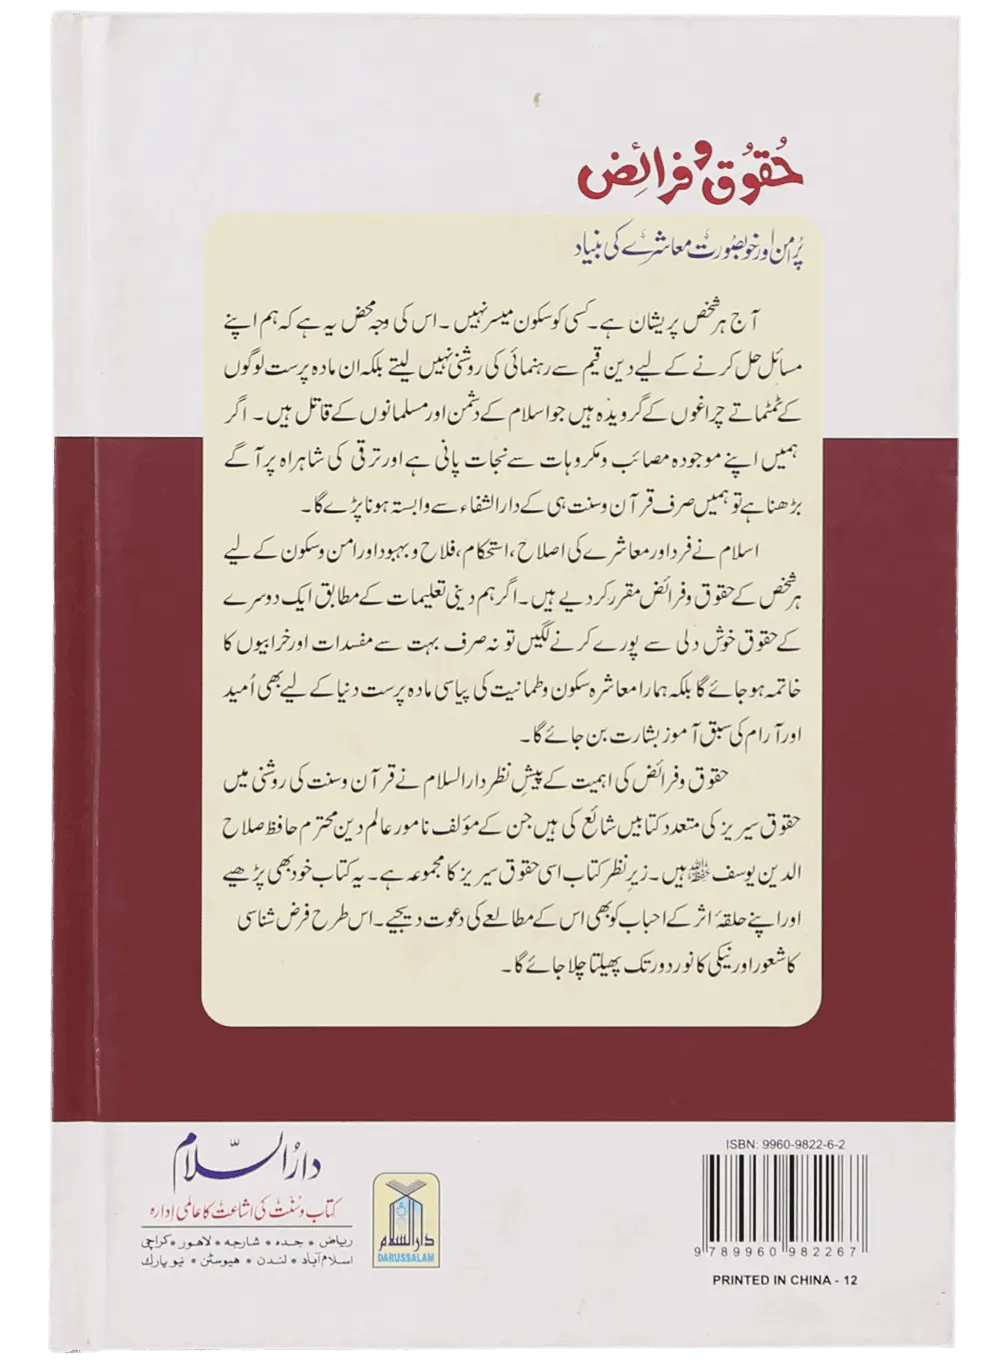 حُقُوق و فرائض
پُرامن اور خوبصورت معاشرے کی بنیاد
آج ہر شخص پریشان ہے۔ کسی کو سکون میسر نہیں۔ اس کی وجہ محض یہ ہے کہ ہم اپنے
مسائل حل کرنے کے لیے دین قیم سے رہنمائی کی روشنی نہیں لیتے بلکہ ان مادہ پرست لوگوں
کے ٹمٹماتے چراغوں کے گرویدہ ہیں جو اسلام کے دشمن اور مسلمانوں کے قاتل ہیں۔ اگر
ہمیں اپنے موجودہ مصائب و مکروہات سے نجات پانی ہے اور ترقی کی شاہراہ پر آگے
بڑھنا ہے تو ہمیں صرف قرآن و سنت ہی کے دار الشفاء سے وابستہ ہونا پڑے گا۔
اسلام نے فرد اور معاشرے کی اصلاح، استحکام، فلاح و بہبود اور امن و سکون کے لیے
ہر شخص کے حقوق و فرائض مقرر کر دیے ہیں۔ اگر ہم دینی تعلیمات کے مطابق ایک دوسرے
کے حقوق خوش دلی سے پورے کرنے لگیں تو نہ صرف بہت سے مفسدات اور خرابیوں کا
خاتمہ ہو جائے گا بلکہ ہمارا معاشرہ سکون و طمانیت کی پیاسی مادہ پرست دنیا کے لیے بھی اُمید
اور آرام کی سبق آموز بشارت بن جائے گا۔
حقوق و فرائض کی اہمیت کے پیشِ نظر دارالسلام نے قرآن و سنت کی روشنی میں
حقوق سیریز کی متعدد کتابیں شائع کی ہیں جن کے مؤلف نامور عالم دین محترم حافظ صلاح
الدین یوسف ﷾ ہیں۔ زیرِ نظر کتاب اسی حقوق سیریز کا مجموعہ ہے۔ یہ کتاب خود بھی پڑھیے
اور اپنے حلقۂ اثر کے احباب کو بھی اس کے مطالعے کی دعوت دیجیے۔ اس طرح فرض شناسی
کا شعور اور نیکی کا نور دور تک پھیلتا چلا جائے گا۔
دارُالسّلام
کتاب و سُنّت کی اشاعت کا عالمی ادارہ
ریاض • جدہ • شارجہ • لاہور • کراچی
اسلام آباد • لندن • ہیوسٹن • نیو یارک
دارالسلام
DARUSSALAM
ISBN: 9960-9822-6-2
9 789960 982267
PRINTED IN CHINA - 12